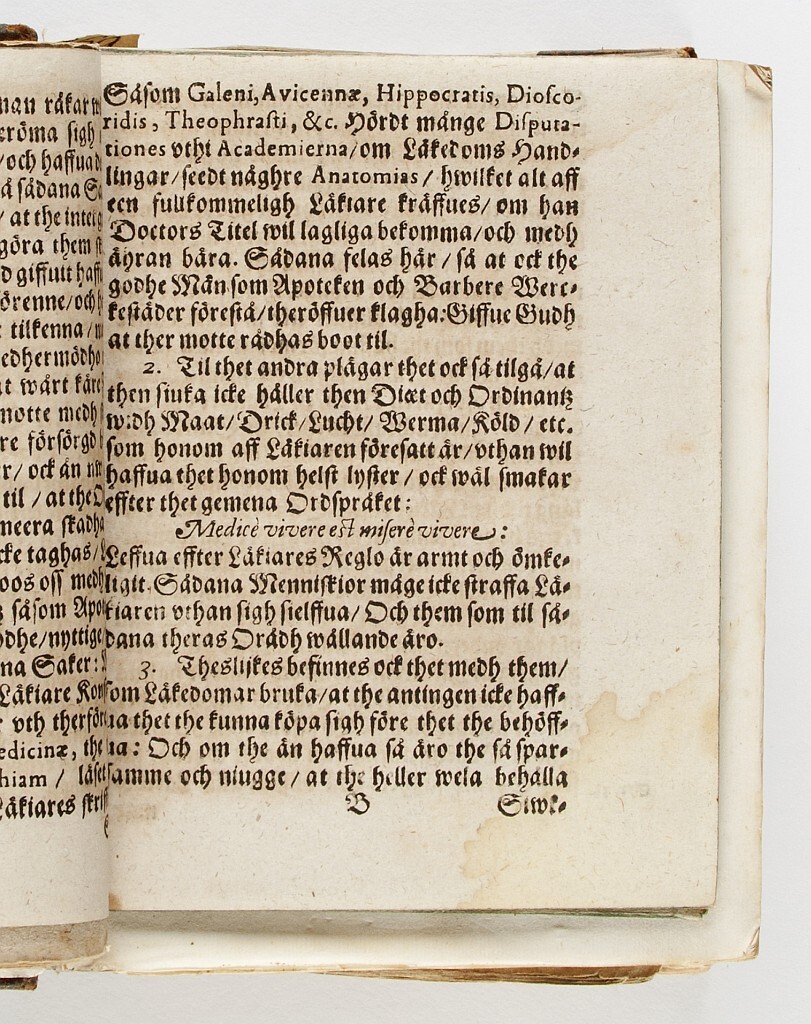 nan råkar
eröma sigh
/och haffua
å sådana
/ at the
göra them
d giffuit
örenne/och
tilkenna/
edhermödho
t wårt
motte medh
re försörgd
r/ ock än
til / at the
meera skadh
cke taghas/
oos oss medh
såsom Apo
odhe/nyttige
na Saker:
Läkiare
vth therföre
edicinæ, the
hiam / läse
Läkiares
Såsom Galeni, Avicennæ, Hippocratis, Diosco-
ridis, Theophrasti, &c. Hördt månge Disputa-
tiones vthi Academierna/om Läkedoms Hand-
lingar/seedt någhre Anatomias / hwilket alt aff
een fullkommeligh Läkiare kräffues/ om han
Doctors Titel wil lagliga bekomma/och medh
ähran bära. Sådana felas här / så at ock the
godhe Män som Apoteken och Barbere Werc-
kestäder förestå/theröffuer klagha: Giffue Gudh
at ther motte rådhas boot til.
2. Til thet andra plägar thet ock så tilgå/at
then siuka icke håller then Diæt och Ordinantz
widh Maat/Drick/Lucht/ Werma/Köld / etc.
som honom aff Läkiaren föresatt är/vthan wil
haffua thet honom helst lyster / ock wäl smakar
effter thet gemena Ordspråket:
Medicè vivere est miserè vivere:
Leffua effter Läkiares Reglo är armt och ömke-
ligit. Sådana Menniskior måge icke straffa Lä-
kiaren vthan sigh sielffua/ Och them som til så-
dana theras Orådh wållande äro.
3. Theslijkes befinnes ock thet medh them/
som Läkedomar bruka/at the antingen icke haff-
ua thet the kunna köpa sigh före thet the behöff-
ua: Och om the än haffua så äro the så spar-
samme och niugge / at the heller wela behålla
B Siwk-